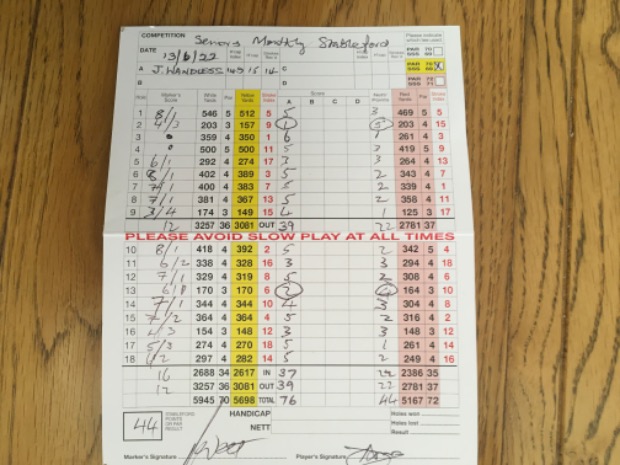 COMPETITION Seniors Monthly Stableford
DATE 13/6/22
Please indicate which tee used
PAR 70
SSS 69
A J. WANDLESS 14.3 15 14 C
PAR 70
SSS 68 X
B D
PAR 72
SSS 71
Hole Marker's Score White Yards Par Yellow Yards Stroke Index Score A B C D Nett/Points Red Yards Par Stroke Index
1 8/1 546 5 512 5 5 3 469 5 5
2 4/3 203 3 157 9 1 5 203 4 15
3 359 4 350 1 6 1 261 4 3
4 500 5 500 11 5 3 419 5 9
5 6/1 292 4 274 17 3 3 264 4 13
6 8/1 402 4 389 3 5 2 343 4 7
7 7/1 400 4 383 7 5 2 339 4 1
8 7/1 381 4 367 13 5 2 358 4 11
9 3/4 174 3 149 15 4 1 125 3 17
12 3257 36 3081 OUT 39 22 2781 37
PLEASE AVOID SLOW PLAY AT ALL TIMES
10 8/1 418 4 392 2 5 2 342 5 4
11 6/2 338 4 328 16 3 3 294 4 18
12 7/1 329 4 319 8 5 2 308 4 6
13 170 3 170 6 2 4 164 3 10
14 7/1 344 4 344 10 4 3 304 4 8
15 7/2 364 4 364 4 5 2 316 4 2
16 4/3 154 3 148 12 3 3 148 3 12
17 5/3 274 4 270 18 5 1 261 4 14
18 297 4 282 14 5 2 249 4 16
16 2688 34 2617 IN 37 22 2386 35
12 3257 36 3081 OUT 39 22 2781 37
5945 70 5698 TOTAL 76 44 5167 72
44 STABLEFORD POINTS OR PAR RESULT
HANDICAP
NETT
Holes won
Holes lost
Result
Marker's Signature Player's Signature